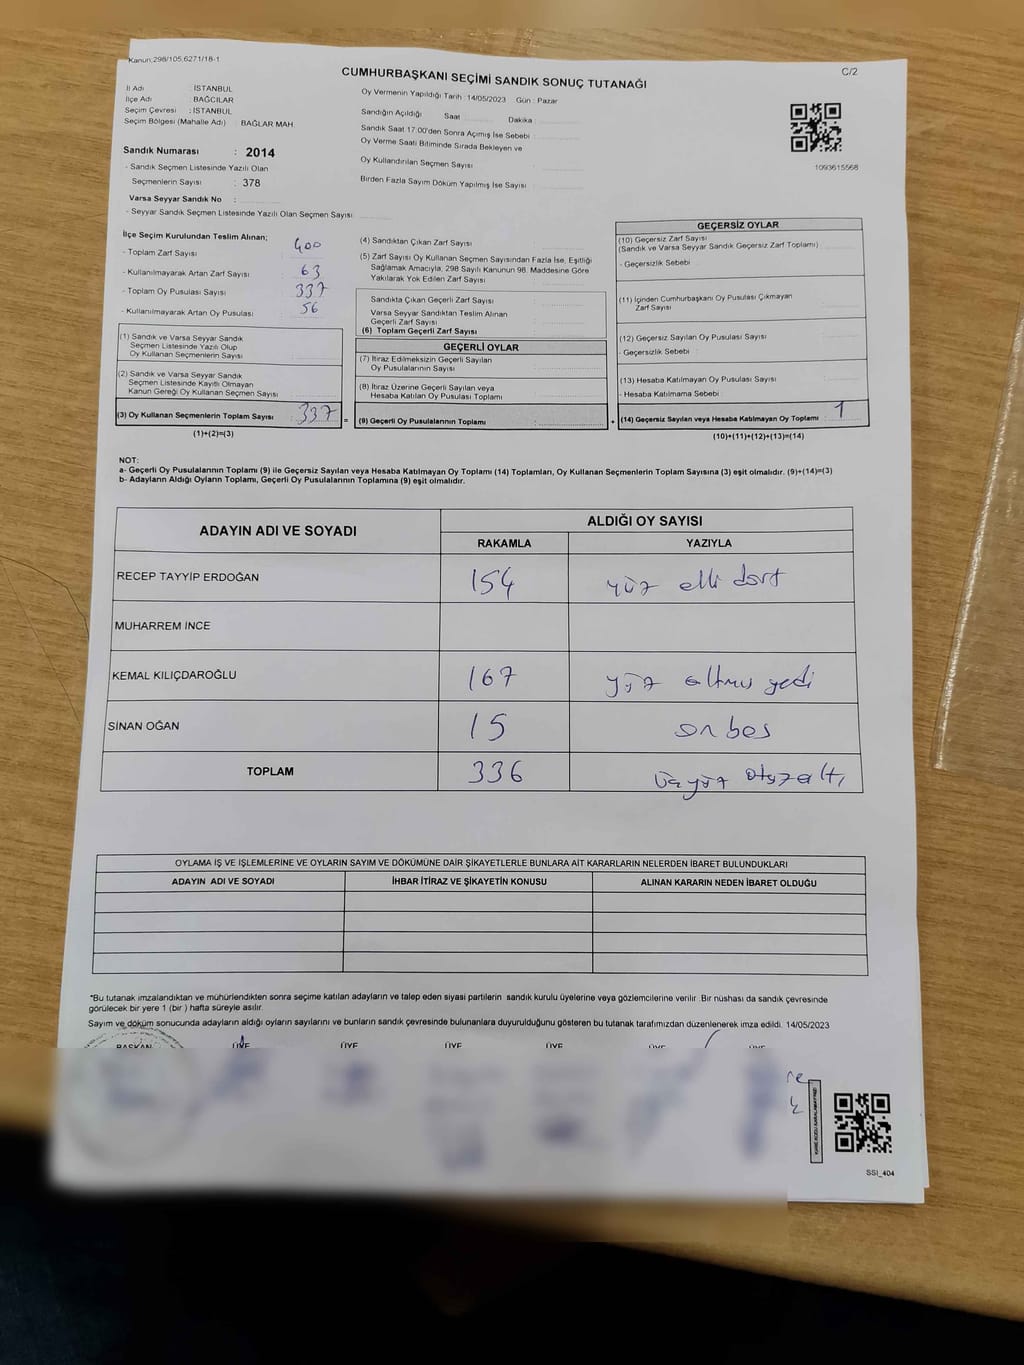 Kanun:298/105,6271/18-1
C/2
CUMHURBAŞKANI SEÇİMİ SANDIK SONUÇ TUTANAĞI
İl Adı : İSTANBUL
İlçe Adı : BAĞCILAR
Seçim Çevresi : İSTANBUL
Seçim Bölgesi (Mahalle Adı) : BAĞLAR MAH.
Sandık Numarası : 2014
- Sandık Seçmen Listesinde Yazılı Olan
Seçmenlerin Sayısı : 378
Varsa Seyyar Sandık No :
- Seyyar Sandık Seçmen Listesinde Yazılı Olan Seçmen Sayısı
Oy Vermenin Yapıldığı Tarih : 14/05/2023 Gün : Pazar
Sandığın Açıldığı Saat Dakika :
Sandık Saat 17:00'den Sonra Açımış İse Sebebi :
Oy Verme Saati Bitiminde Sırada Bekleyen ve
Oy Kullandırılan Seçmen Sayısı :
Birden Fazla Sayım Döküm Yapılmış İse Sayısı :
1093615568
İlçe Seçim Kurulundan Teslim Alınan;
- Toplam Zarf Sayısı : 400
- Kullanılmayarak Artan Zarf Sayısı : 63
- Toplam Oy Pusulası Sayısı : 337
- Kullanılmayarak Artan Oy Pusulası : 56
(1) Sandık ve Varsa Seyyar Sandık
Seçmen Listesinde Yazılı Olup
Oy Kullanan Seçmenlerin Sayısı :
(2) Sandık ve Varsa Seyyar Sandık
Seçmen Listesinde Kayıtlı Olmayan
Kanun Gereği Oy Kullanan Seçmen Sayısı :
(3) Oy Kullanan Seçmenlerin Toplam Sayısı : 337
(1)+(2)=(3)
(4) Sandıktan Çıkan Zarf Sayısı :
(5) Zarf Sayısı Oy Kullanan Seçmen Sayısından Fazla İse, Eşitliği
Sağlamak Amacıyla, 298 Sayılı Kanunun 98. Maddesine Göre
Yakılarak Yok Edilen Zarf Sayısı :
Sandıkta Çıkan Geçerli Zarf Sayısı :
Varsa Seyyar Sandıktan Teslim Alınan
Geçerli Zarf Sayısı :
(6) Toplam Geçerli Zarf Sayısı :
GEÇERLİ OYLAR
(7) İtiraz Edilmeksizin Geçerli Sayılan
Oy Pusulalarının Sayısı :
(8) İtiraz Üzerine Geçerli Sayılan veya
Hesaba Katılan Oy Pusulaları Toplamı :
= (9) Geçerli Oy Pusulalarının Toplamı :
GEÇERSİZ OYLAR
(10) Geçersiz Zarf Sayısı
(Sandık ve Varsa Seyyar Sandık Geçersiz Zarf Toplamı) :
- Geçersizlik Sebebi :
(11) İçinden Cumhurbaşkanı Oy Pusulası Çıkmayan
Zarf Sayısı :
(12) Geçersiz Sayılan Oy Pusulası Sayısı :
- Geçersizlik Sebebi :
(13) Hesaba Katılmayan Oy Pusulası Sayısı :
- Hesaba Katılmama Sebebi :
+ (14) Geçersiz Sayılan veya Hesaba Katılmayan Oy Toplamı : 1
(10)+(11)+(12)+(13)=(14)
NOT:
a- Geçerli Oy Pusulalarının Toplamı (9) ile Geçersiz Sayılan veya Hesaba Katılmayan Oy Toplamı (14) Toplamları, Oy Kullanan Seçmenlerin Toplam Sayısına (3) eşit olmalıdır. (9)+(14)=(3)
b- Adayların Aldığı Oyların Toplamı, Geçerli Oy Pusulalarının Toplamına (9) eşit olmalıdır.
ADAYIN ADI VE SOYADI ALDIĞI OY SAYISI
RAKAMLA YAZIYLA
RECEP TAYYİP ERDOĞAN 154 yüz elli dört
MUHARREM İNCE
KEMAL KILIÇDAROĞLU 167 yüz altmış yedi
SİNAN OĞAN 15 on beş
TOPLAM 336 üçyüz otuzaltı
OYLAMA İŞ VE İŞLEMLERİNE VE OYLARIN SAYIM VE DÖKÜMÜNE DAİR ŞİKAYETLERLE BUNLARA AİT KARARLARIN NELERDEN İBARET BULUNDUKLARI
ADAYIN ADI VE SOYADI İHBAR İTİRAZ VE ŞİKAYETİN KONUSU ALINAN KARARIN NEDEN İBARET OLDUĞU
*Bu tutanak imzalandıktan ve mühürlendikten sonra seçime katılan adayların ve talep eden siyasi partilerin sandık kurulu üyelerine veya gözlemcilerine verilir. Bir nüshası da sandık çevresinde
görülecek bir yere 1 (bir) hafta süreyle asılır.
Sayım ve döküm sonucunda adayların aldığı oyların sayılarını ve bunların sandık çevresinde bulunanlara duyurulduğunu gösteren bu tutanak tarafımızdan düzenlenerek imza edildi. 14/05/2023
BAŞKAN ÜYE ÜYE ÜYE ÜYE ÜYE ÜYE
SSI_404